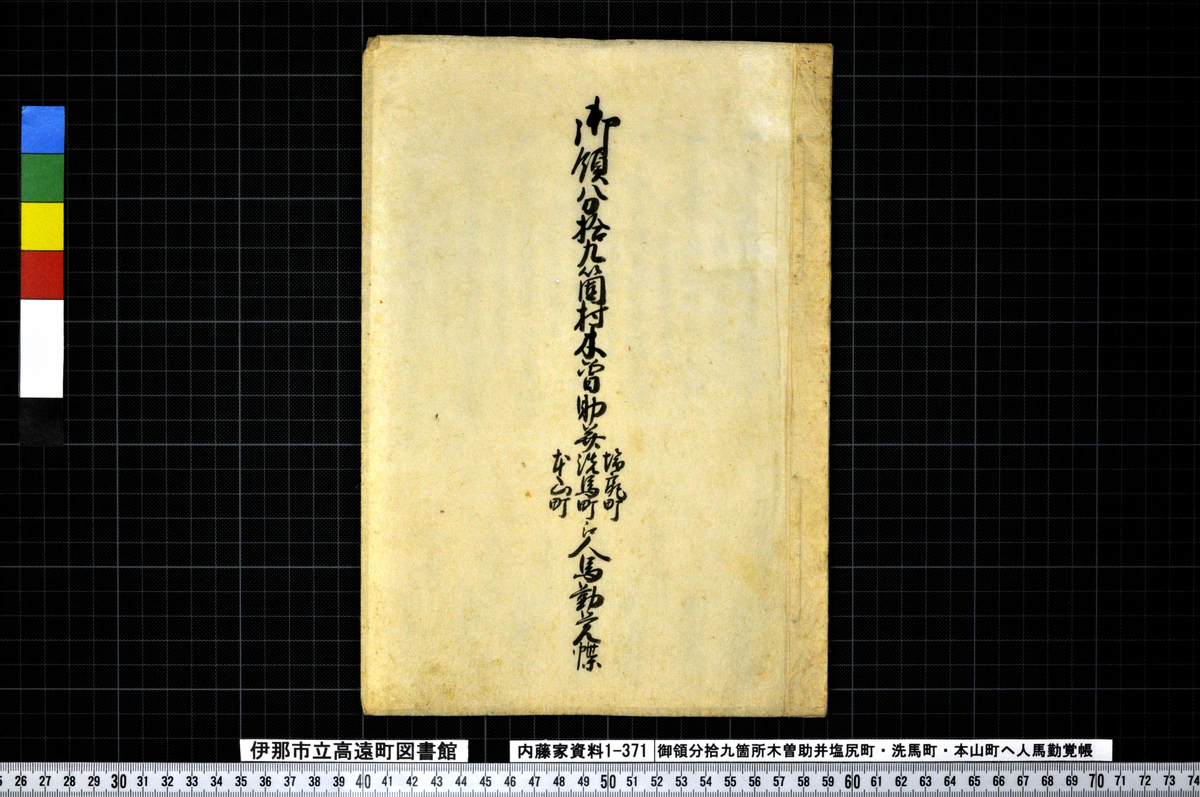 御領分拾九箇村木曽助并
塩尻町
洗馬町
本山町
江人馬勤覚帳
伊那市立高遠町図書館
内藤家資料1-371
御領分拾九箇所木曽助并塩尻町・洗馬町・本山町へ人馬勤覚帳
26 27 28 29 30 31 32 33 34 35 36 37 38 39 40 41 42 43 44 45 46 47 48 49 50 51 52 53 54 55 56 57 58 59 60 61 62 63 64 65 66 67 68 69 70 71 72 73 74